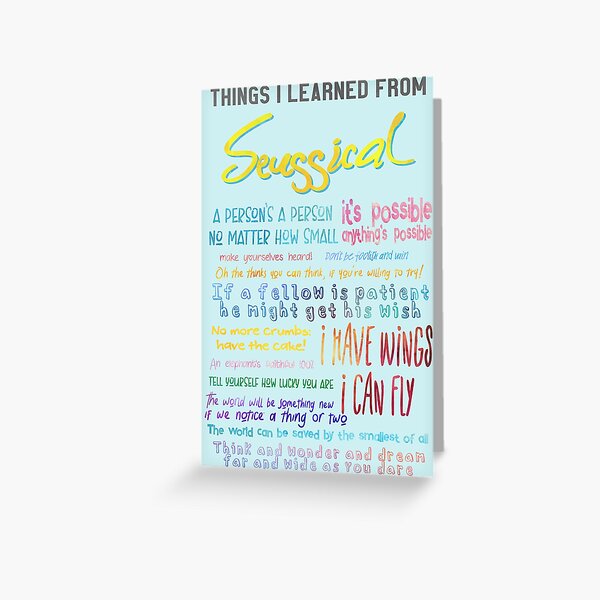 THINGS I LEARNED FROM
Seussical
A PERSON'S A PERSON
NO MATTER HOW SMALL
it's possible
anything's possible
make yourselves heard!
Don't be foolish and win
Oh the thinks you can think, if you're willing to try!
If a fellow is patient
he might get his wish
No more crumbs:
have the cake!
I HAVE WINGS
An elephant's faithful 100%
TELL YOURSELF HOW LUCKY YOU ARE
I CAN FLY
The world will be something new
if we notice a thing or two
The world can be saved by the smallest of all
Think and wonder and dream
far and wide as you dare